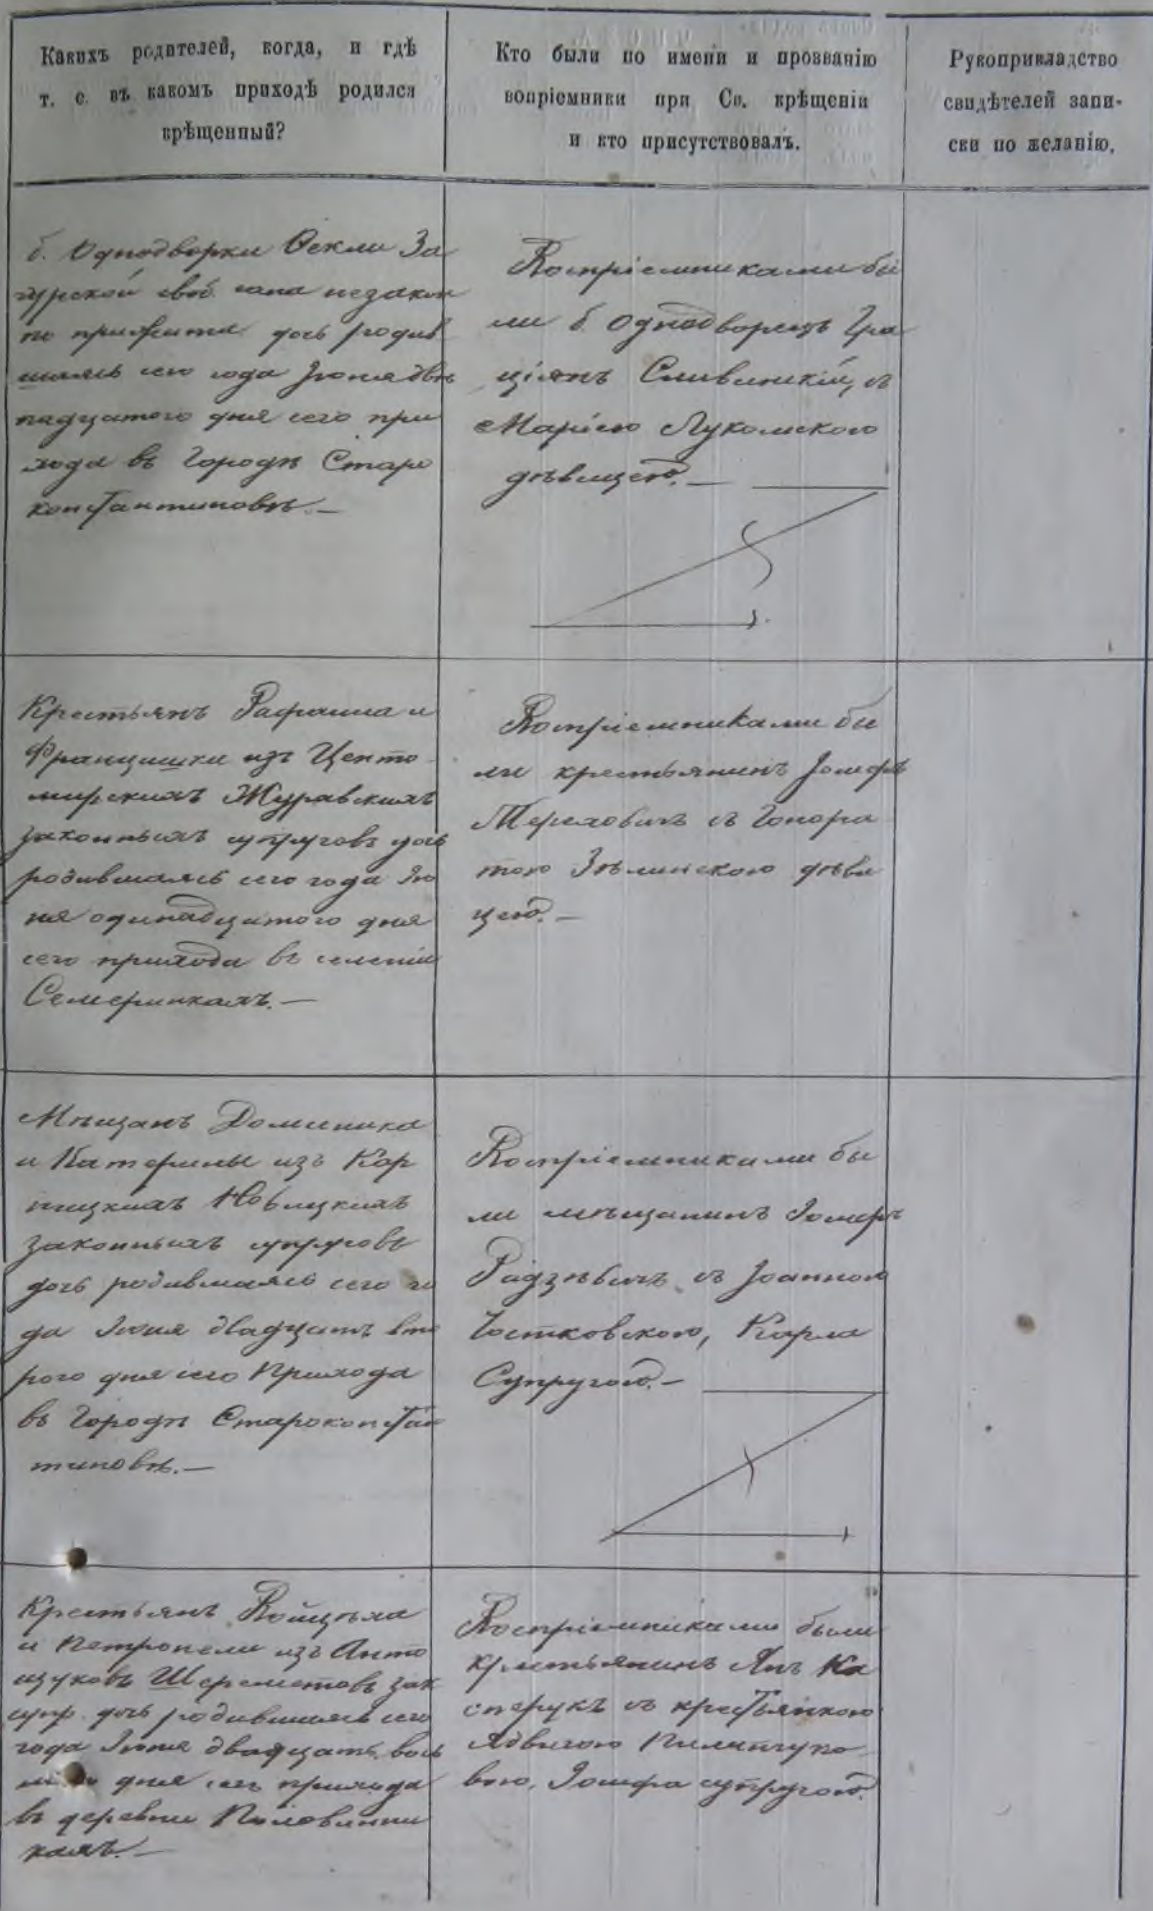 Какихъ родителей, когда, и гдѣ
т. е. въ какомъ приходѣ родился
крѣщенный?
Кто были по имени и прозванію
вопріемники при Св. крѣщеніи
и кто присутствовалъ.
Рукоприкладство
свидѣтелей запи-
ски по желанію.
б. Однодворки Ѳекли За
гурской своб. сост. незакон
но прижита дочь родив
шаясь сего года Іюня двѣ
надцатого дня сего при
хода въ Городѣ Старо
константиновѣ.—
Воспріемниками бы
ли б. однодворецъ Гра
ціянъ Сливинскій, съ
Маріею Лукомскою
дѣвицею.—
Крестьянъ Рафаила и
Францишки изъ Центо
мирскихъ Журавскихъ
законныхъ супруговъ дочь
родившаясь сего года Ію
ня одинадцатого дня
сего прихода въ селеніи
Семеринкахъ.—
Воспріемниками бы
ли крестьянинъ Іосифъ
Тереховичъ съ Гонора
тою Зѣлинскою дѣви
цею.—
Мѣщанъ Доминика
и Катерины изъ Кар
пицкихъ Новицкихъ
законныхъ супруговъ
дочь родившаясь сего го
да Іюня двадцать вто
рого дня сего Прихода
въ Городѣ Старокон­стан
тиновѣ.—
Воспріемниками бы
ли мѣщанинъ Іосифъ
Радзѣвичъ съ Іоанною
Чостковскою, Карла
Супругою.—
Крестьянъ Войцѣха
и Петронели изъ Анто
щуковъ Шереметовъ зак
супр. дочь родившаясь сего
года Іюня двадцать вось
дня сего прихода
въ деревни Пиловинни
кахъ.—
Воспріемниками были
крестьянинъ Янъ Ка
сперукъ съ крестьянкою
Ядвигою Пилипчуко
вою, Іосифа супругою.